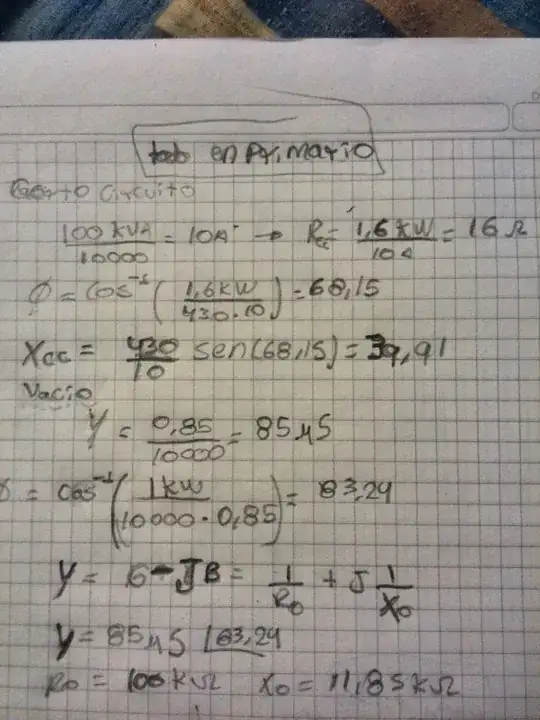 en Primario
Corto Circuito
100 KVA / 10000 = 10A → Rcc = 1,6 KW / 10A = 16 Ω
Ø = Cos⁻¹ ( 1,6 KW / 430·10 ) = 68,15
Xcc = 430 / 10 sen(68,15) = 39,91
Vacio
Y = 0,85 / 10000 = 85 μS
= cos⁻¹ ( 1 KW / 10000·0,85 ) = 83,24
Y = G - JB = 1/Ro + J 1/Xo
Y = 85 μS ∠83,24
Ro = 100 KΩ Xo = 11,85 KΩ